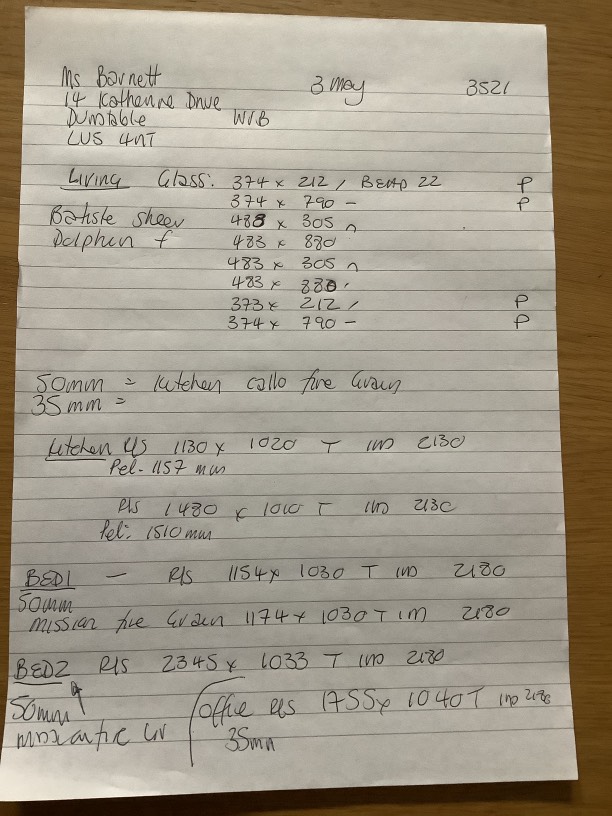 Ms Barnett 3 May 3521
14 Katherine Drive
Dunstable W/B
LU5 4NT
Living Glass: 374 x 212 / BEAD 22 P
374 x 790 - P
Batiste sheer 488 x 305
Dolphin f 483 x 880
483 x 305
483 x 880
373 x 212 / P
374 x 790 - P
50mm = Kitchen calio fine Grain
35mm =
Kitchen R/S 1130 x 1020 T IND 2130
Pel- 1157 mm
R/S 1480 x 1010 T IND 2130
Pel: 1510mm
BED1 - R/S 1154 x 1030 T IND 2180
50mm
mission fine Grain 1174 x 1030 T IND 2180
BED2 R/S 2345 x 1033 T IND 2180
50mm office R/S 1755 x 1040 T IND 2180
35mm